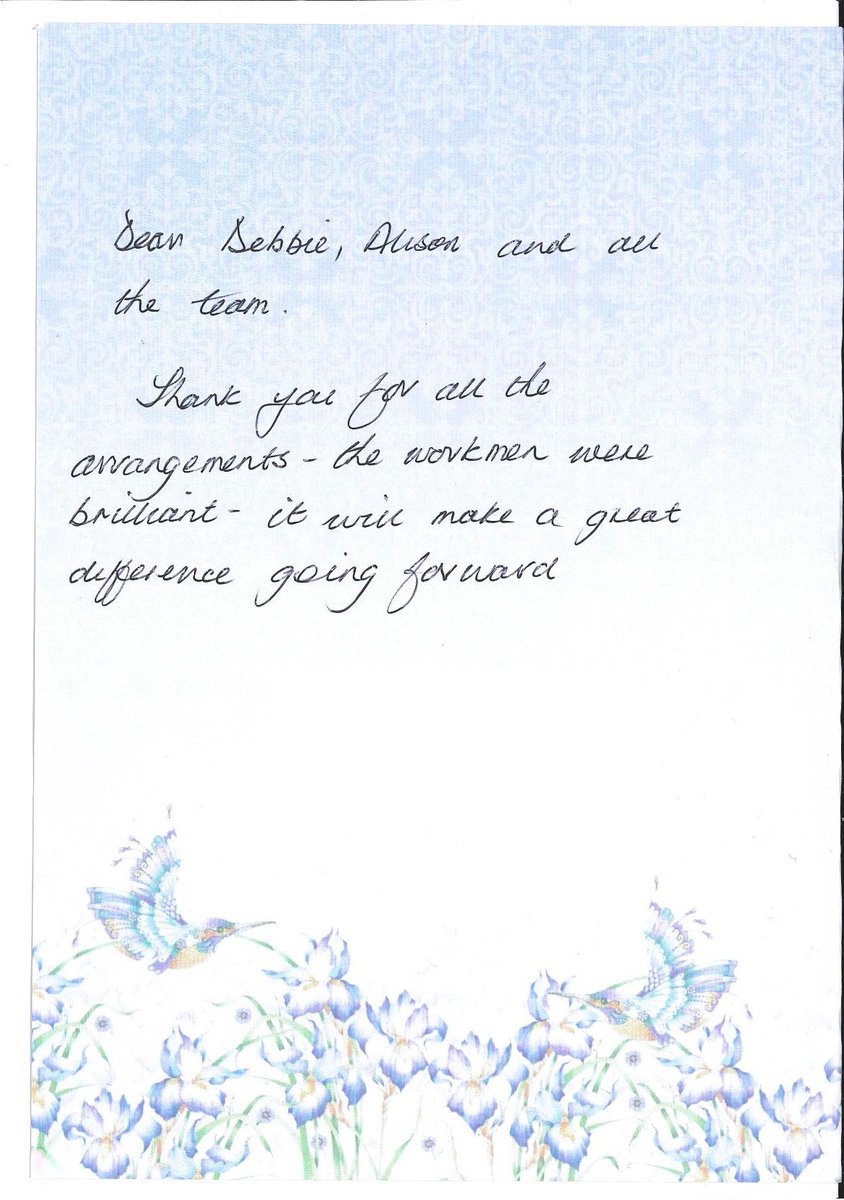 Dear Debbie, Alison and all
the team.
Thank you for all the
arrangements – the workmen were
brilliant – it will make a great
difference going forward